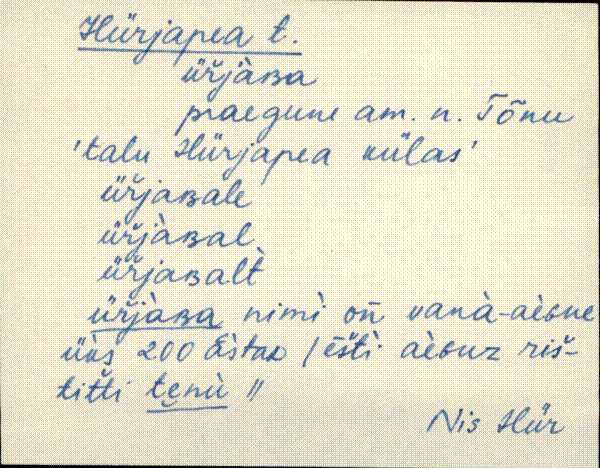 Hürjapea t.
üřjàʙa
praegune am. n. Tõnu
'talu Hürjapea külas'
üřjaʙale
üřjàʙal
üřjaʙalt̀
üřjàʙa nimì on̄ vanà-aèɢne
üùs 200 àstaᴅ / ēšti aèɢuz riš-
titti tenù //
Nis Hür